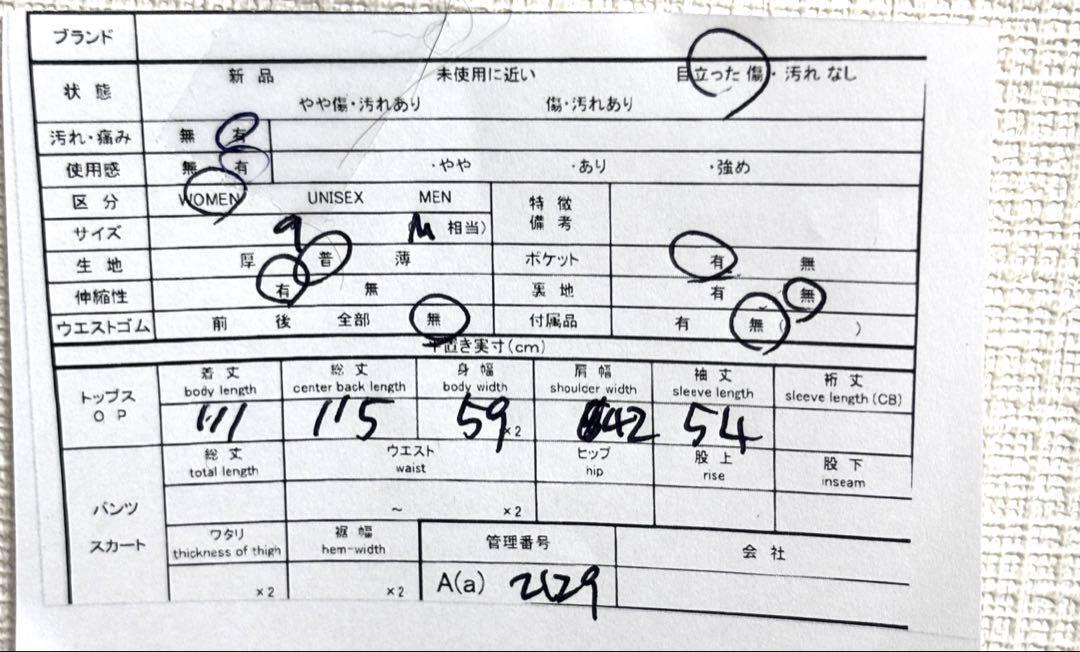 ブランド
状態 新品 未使用に近い 目立った傷・汚れなし
やや傷・汚れあり 傷・汚れあり
汚れ・痛み 無 有
使用感 無 有 ・やや ・あり ・強め
区分 WOMEN UNISEX MEN 特徴
備考
サイズ 9 M 相当)
生地 厚 普 薄 ポケット 有 無
伸縮性 有 無 裏地 有 無
ウエストゴム 前 後 全部 無 付属品 有 無 ( )
平置き実寸(cm)
トップス
OP
着丈 総丈 身幅 肩幅 袖丈 裄丈
body length center back length body width shoulder width sleeve length sleeve length (CB)
111 115 59 ×2 42 54
パンツ
スカート
総丈 ウエスト ヒップ 股上 股下
total length waist hip rise inseam
~ ×2
ワタリ 裾幅 管理番号 会社
thickness of thigh hem-width
×2 ×2 A(a) 2129